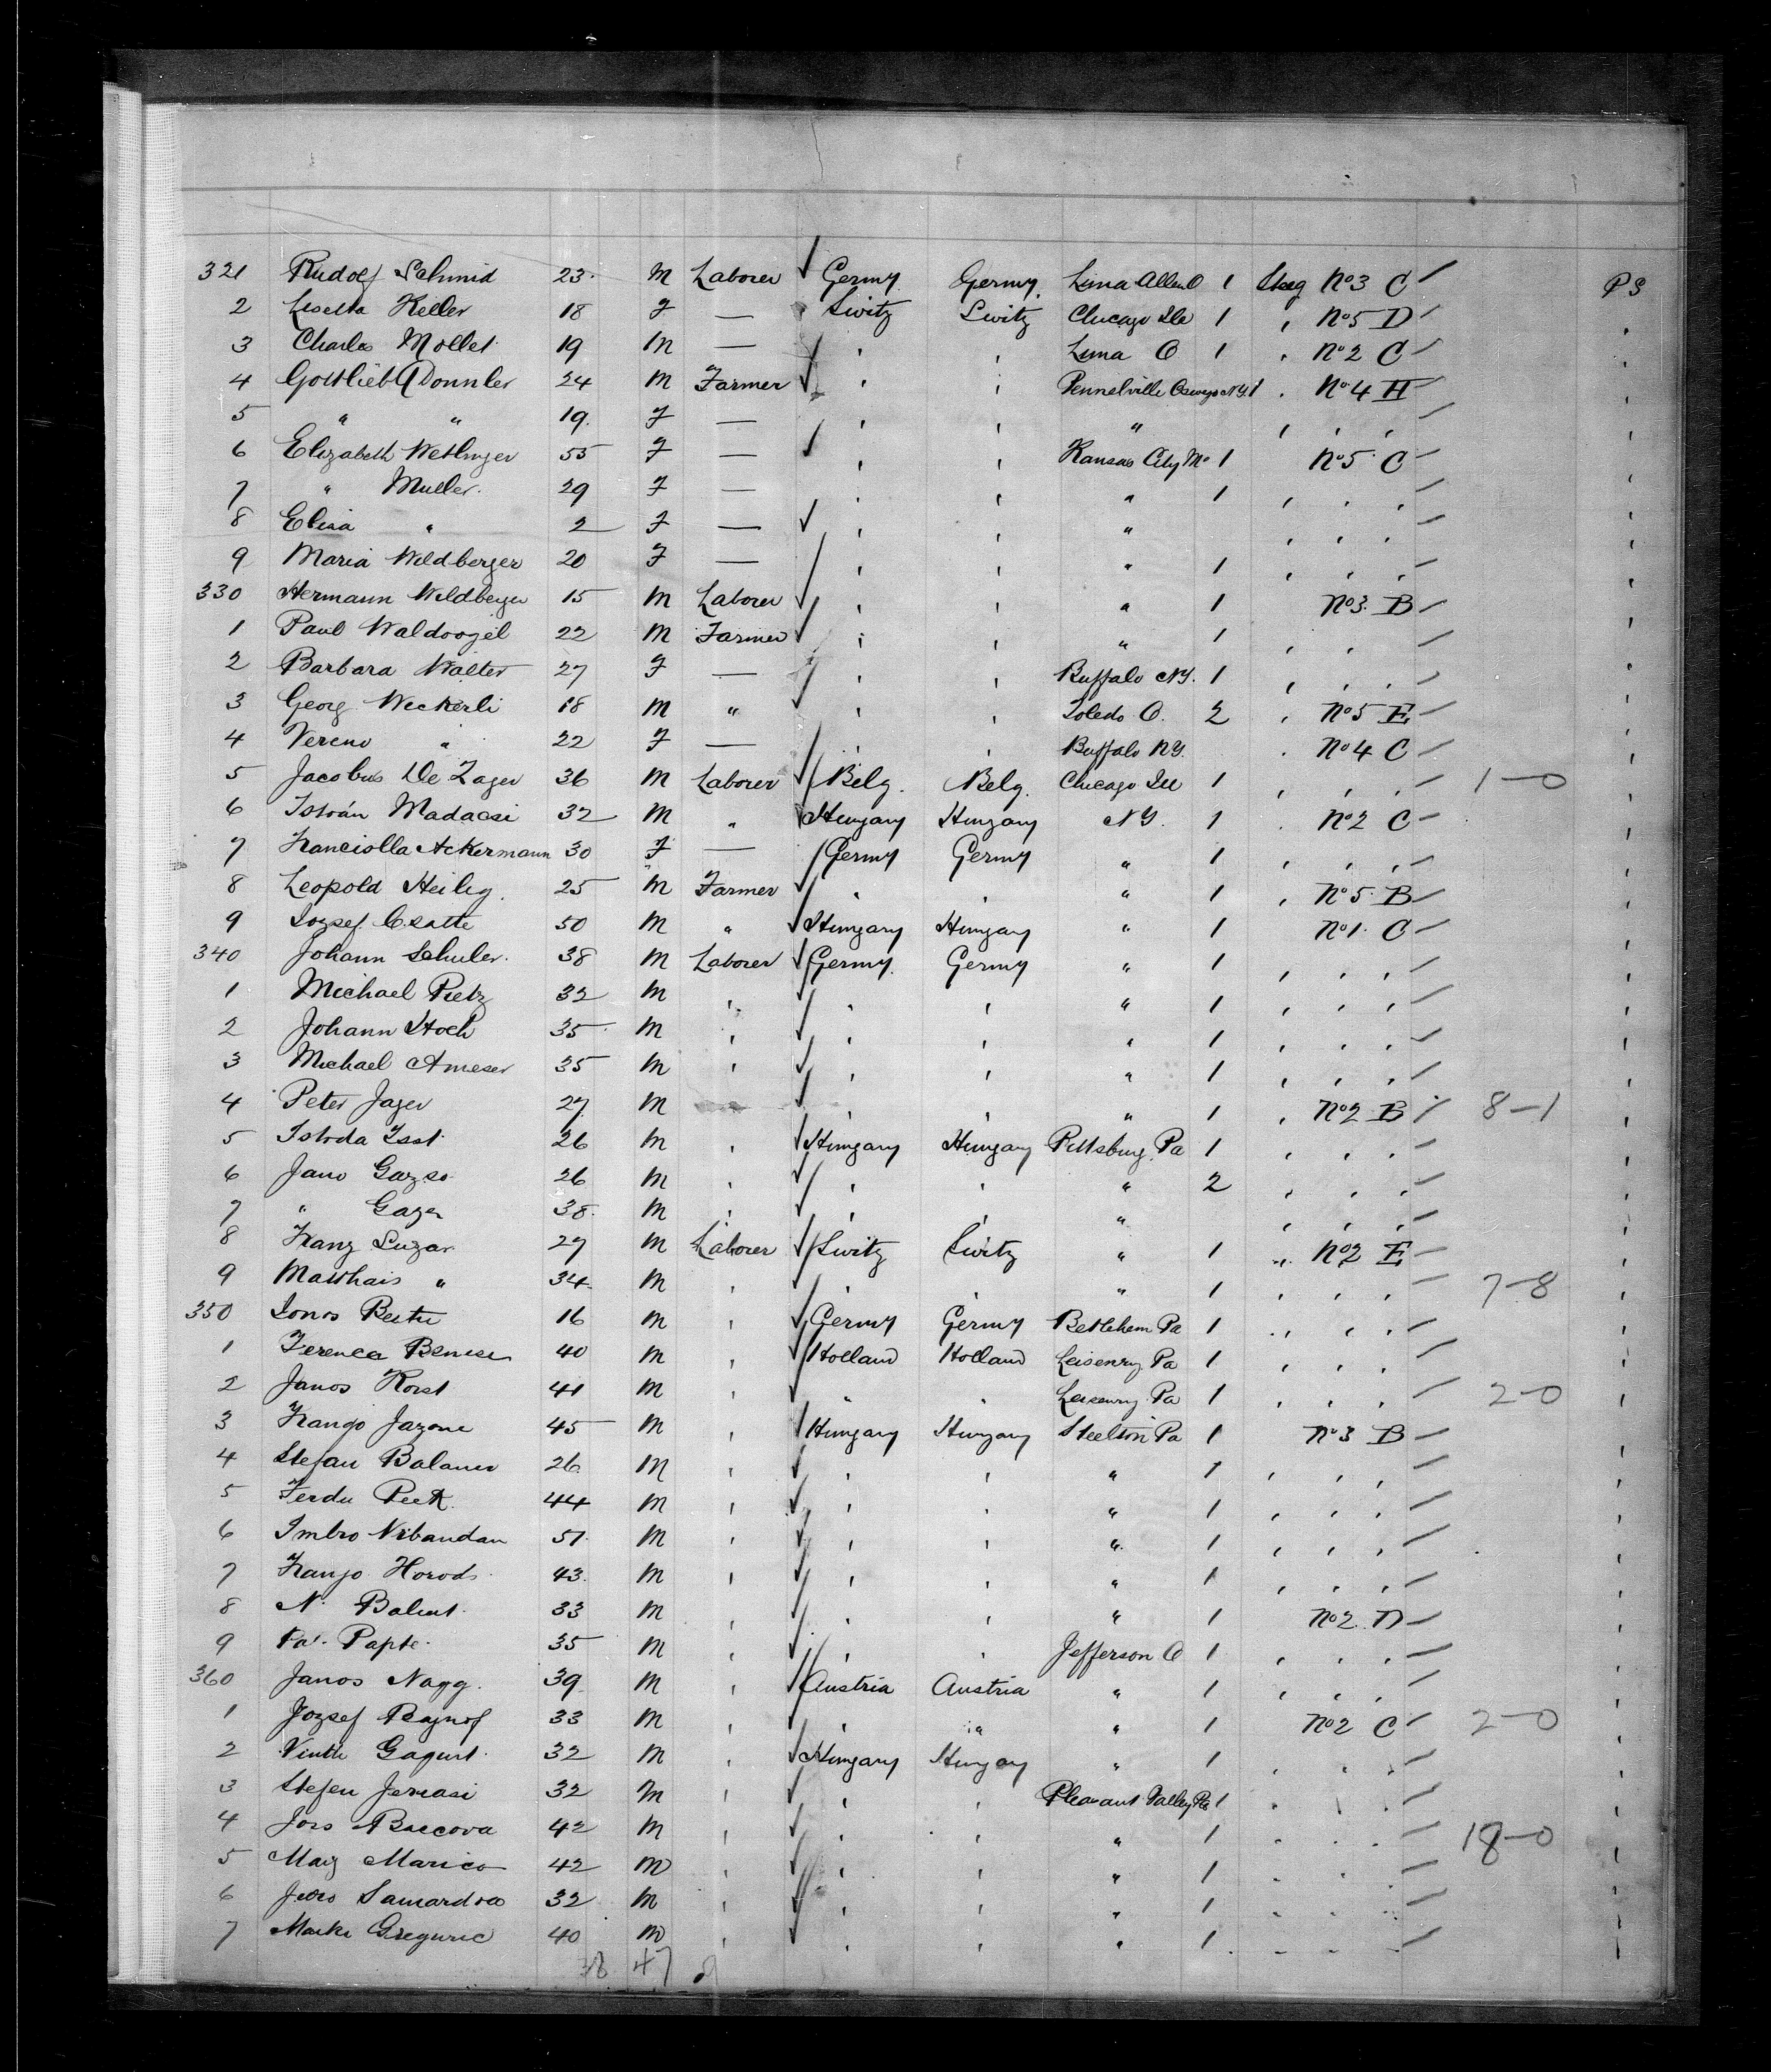 321 Rudolf Schmid 23 M Laborer ✓ Germy. Germy. Lima Allen O 1 Steeg No 3 C / PS
2 Lisetta Keller 18 F — Switz Switz Chicago Ills 1 " No 5 D / "
3 Charles Mollet 19 M — ✓ " " Lima O 1 " No 2 C / "
4 Gottlieb Donnler 24 M Farmer ✓ " " Pennelville Oswego N.Y. 1 " No 4 H / "
5 " " 19 F — " " " " " " / "
6 Elizabeth Wetlinger 55 F — ✓ " " Kansas City Mo 1 No 5 C / "
7 " Muller 29 F — " " " 1 " " " / "
8 Elisa " 2 F — ✓ " " " " " " / "
9 Maria Wildberger 20 F — ✓ " " " 1 " " " / "
330 Hermann Wildberger 15 M Laborer ✓ " " " 1 No 3 B / "
1 Paul Waldvogel 22 M Farmer ✓ " " " 1 " " / "
2 Barbara Walter 27 F — ✓ " " Buffalo N.Y. 1 " " " / "
3 Georg Weckerli 18 M " ✓ " " Toledo O. 2 " No 5 E / "
4 Vereno " 22 F — ✓ " " Buffalo N.Y. " No 4 C / "
5 Jacobus De Zager 36 M Laborer ✓ Belg. Belg. Chicago Ill 1 " " " / 1-0 "
6 István Madacsi 32 M " ✓ Hungary Hungary N.Y. 1 " No 2 C / "
7 Franciolla Ackermann 30 F — ✓ Germy Germy " 1 " " " / "
8 Leopold Heilig 25 M Farmer ✓ " " " 1 " No 5 B / "
9 Jozsef Csatte 50 M " ✓ Hungary Hungary " 1 No 1 C / "
340 Johann Schuler 38 M Laborer ✓ Germy. Germy " 1 " " " / "
1 Michael Pietz 32 M " ✓ " " " 1 " " " / "
2 Johann Stoch 35 M " ✓ " " " 1 " " " / "
3 Michael Ameser 35 M " ✓ " " " 1 " " " / "
4 Peter Jager 27 M ✓ " " " 1 " No 2 B / 8-1 "
5 Istvda Zsot 26 M " ✓ Hungary Hungary Pittsburg Pa 1 " " " / "
6 Jano Gazso 26 M " ✓ " " " 2 " " " / "
7 " Gazer 38 M " ✓ " " " " " " / "
8 Franz Luzar 27 M Laborer ✓ Switz Switz " 1 " No 2 E / "
9 Matthais " 34 M " ✓ " " " 1 " " " / 7-8 "
350 Jonos Bestu 16 M " ✓ Germy Germy Bethlehem Pa 1 " " " / "
1 Ferencz Benese 40 M " ✓ Holland Holland Leisenry Pa 1 " " " / "
2 Janos Korst 41 M " ✓ " " Leisenry Pa 1 " " " / 2-0 "
3 Franjo Jazone 45 M " ✓ Hungary Hungary Steelton Pa 1 No 3 B / "
4 Stefan Balaner 26 M " ✓ " " " 1 " " " / "
5 Ferdu Peek 44 M " ✓ " " " 1 " " " / "
6 Imbro Nibandan 51 M " ✓ " " " 1 " " " / "
7 Franjo Horods 43 M " ✓ " " " 1 " " " / "
8 N. Balint 33 M " ✓ " " " 1 No 2 D / "
9 Papte 35 M " ✓ " " Jefferson O 1 " " " / "
360 Janos Nagy 39 M " ✓ Austria Austria " 1 " " " / "
1 Jozsef Bajnof 33 M " ✓ " " " 1 No 2 C / 2-0 "
2 Vintli Gagurt 32 M " ✓ Hungary Hungary " 1 " " " / "
3 Stefen Jernasi 32 M " ✓ " " Pleasant Valley Pa 1 " " " / "
4 Jors Baccova 42 M " ✓ " " " 1 " " " / 18-0 "
5 Marz Marico 42 M " ✓ " " " 1 " " / "
6 Juro Samardva 32 M " ✓ " " " 1 " " " / "
7 Marke Greguric 40 M " ✓ " " " 1 " " " / "
38 47 9